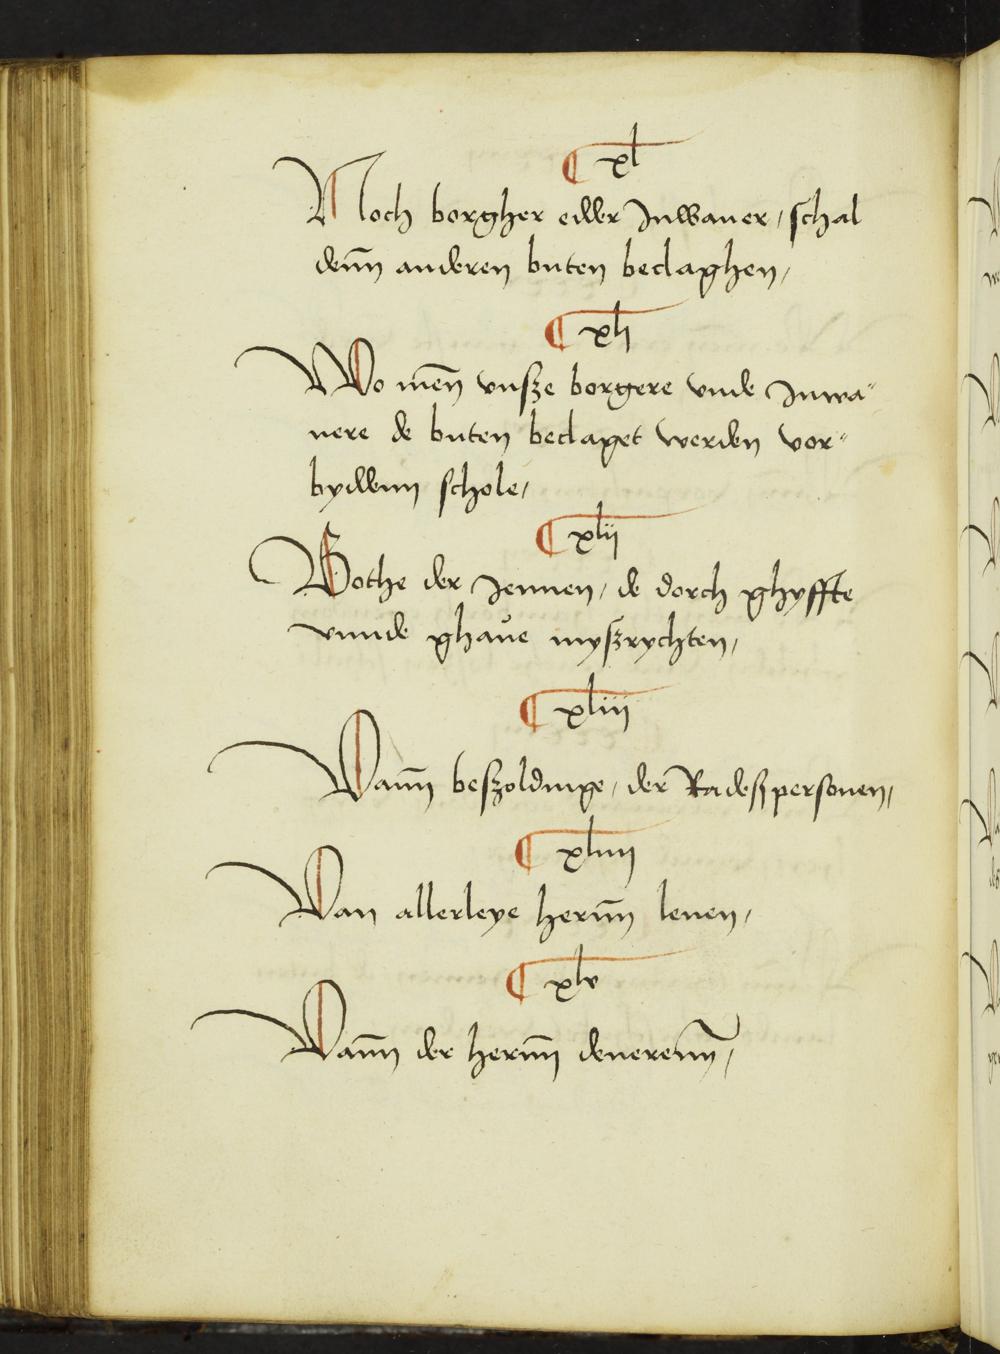 ¶ xl
Noch borgher edder Inwaner / schal
denn̄ anderen buten beclaghen /
¶ xli
Wo men̄ vnsze borgere vnde Inwa"
nere de buten beclaget werden vor"
byddenn schole /
¶ xlii
Bothe der Jennen / de dorch ghyffte
vnnde ghaue myszrychten /
¶ xliii
Vann̄ beszoldinge / der Radeszpersonen /
¶ xliiii
Van allerleye hernn̄ lenen /
¶ xlv
Vann̄ der hernn̄ denerenn /